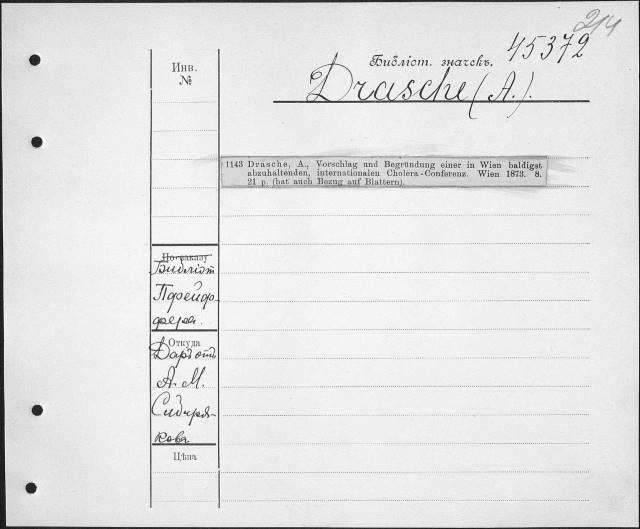 214
Библіот. значекъ. 45372
Инв.
№
Drasche (A.).
1143 Drasche, A., Vorschlag und Begründung einer in Wien baldigst
abzuhaltenden, internationalen Cholera-Conferenz. Wien 1873. 8.
21 p. (hat auch Bezug auf Blattern).
По заказу
Библіот
Пфейф-
фера.
Откуда
Даръ отъ
А. М.
Сибиря-
кова
Цѣна